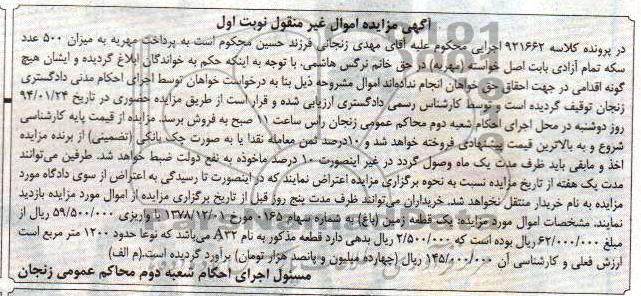 آگهی مزایده اموال غیر منقول نوبت اول
در پرونده کلاسه ۹۲۱۶۶۲ اجرایی محکوم علیه آقای مهدی زنجانی فرزند حسین محکوم است به پرداخت مهریه به میزان ۵۰۰ عدد
سکه تمام آزادی بابت اصل خواسته (مهریه) در حق خانم نرگس هاشمی. با توجه به اینکه حکم به خواندگان ابلاغ گردیده و ایشان هیچ
گونه اقدامی در جهت احقاق حق خواهان انجام نداده‌اند اموال مشروحه ذیل بنا به درخواست خواهان توسط اجرای احکام مدنی دادگستری
زنجان توقیف گردیده است و توسط کارشناس رسمی دادگستری ارزیابی شده و قرار است از طریق مزایده حضوری در تاریخ ۹۴/۰۱/۲۴
روز دوشنبه در محل اجرای احکام شعبه دوم محاکم عمومی زنجان راس ساعت ۱۱ صبح به فروش برسد. مزایده از قیمت پایه کارشناسی
شروع و به بالاترین قیمت پیشنهادی فروخته خواهد شد و ۱۰درصد ثمن معامله نقدا یا به صورت چک بانکی (تضمینی) از برنده مزایده
اخذ و مابقی باید ظرف مدت یک ماه وصول گردد در غیر اینصورت ۱۰ درصد ماخوذه به نفع دولت ضبط خواهد شد. طرفین می‌توانند
مدت یک هفته از تاریخ مزایده نسبت به نحوه برگزاری مزایده اعتراض نمایند که در اینصورت تا رسیدگی به اعتراض از سوی دادگاه مورد
مزایده به نام خریدار منتقل نخواهد شد. خریداران می‌توانند ظرف مدت پنج روز قبل از تاریخ برگزاری مزایده از اموال مورد مزایده بازدید
نمایند. مشخصات اموال مورد مزایده یک قطعه زمین (باغ) به شماره سهام ۰۱۶۵ مورخ ۱۳۷۸/۱۲/۰۱ با واریزی ۵۹/۵۰۰/۰۰۰ ریال از
مبلغ ۶۲/۰۰۰/۰۰۰ ریال بوده است که ۲/۵۰۰/۰۰۰ ریال بدهی دارد قطعه مذکور به نام A۳۲ می‌باشد که نوعا حدود ۱۲۰۰ متر مربع است
ارزش فعلی و کارشناسی آن ۱۴۵/۰۰۰/۰۰۰ ریال (چهارده میلیون و پانصد هزار تومان) برآورد گردیده است.(م الف)
مسئول اجرای احکام شعبه دوم محاکم عمومی زنجان